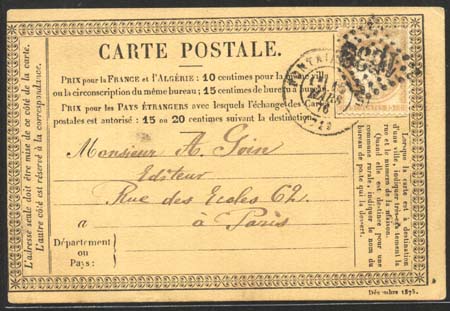 CARTE POSTALE.
PRIX pour la FRANCE et l'ALGÉRIE: 10 centimes pour la même ville
ou la circonscription du même bureau; 15 centimes de bureau à bureau
PRIX pour les PAYS ÉTRANGERS avec lesquels l'échange des Cartes
postales est autorisé: 15 ou 20 centimes suivant la destination.
Monsieur A. Goin
Editeur
Rue des Ecoles 62.
a à Paris
Département
ou
Pays:
L'adresse seule doit être mise de ce côté de la carte.
L'autre côté est réservé à la correspondance.
Lorsque la carte est à destination
d'une ville, indiquer très-exactement la
rue et le numéro de la maison.
Quand elle est destinée pour une
commune rurale, indiquer le nom du
bureau de poste qui la dessert.
Décembre 1875.